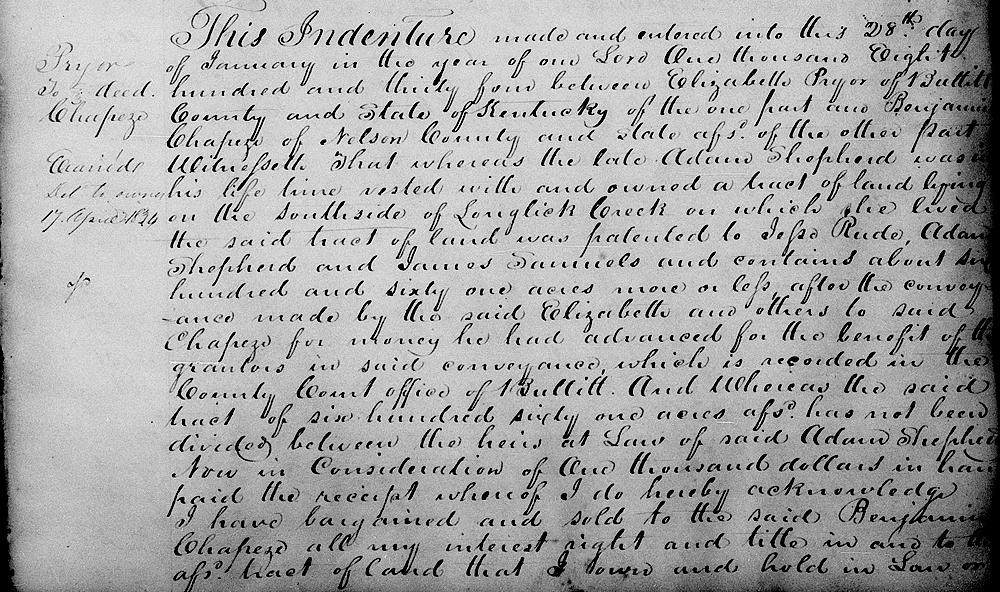 This Indenture made and entered into this 28th day
of January in the year of our Lord One thousand Eight
hundred and thirty four between Elizabeth Pryor of Bullitt
County and State of Kentucky of the one part and Benjamin
Chapeze of Nelson County and State afsd. of the other part
Witnesseth That whereas the late Adam Shepherd was in
his life time vested with and owned a tract of land lying
on the Southside of Longlick Creek on which he lived
the said tract of land was patented to Jesse Rude, Adam
Shepherd and James Samuels and contains about six
hundred and sixty one acres more or less, after the convey-
-ance made by the said Elizabeth and others to said
Chapeze for money he had advanced for the benefit of the
grantors in said conveyance, which is recorded in the
County Court office of Bullitt. And Whereas the said
tract of six hundred sixty one acres afsd. has not been
divided between the heirs at Law of said Adam Shepherd
Now in Consideration of One thousand dollars in hand
paid the receipt whereof I do hereby acknowledge
I have bargained and sold to the said Benjamin
Chapeze all my interest right and title in and to the
afsd. tract of land that I own and hold in Law or
Pryor
To } deed.
Chapeze
Exam'd
Del to owner
17 April 1834